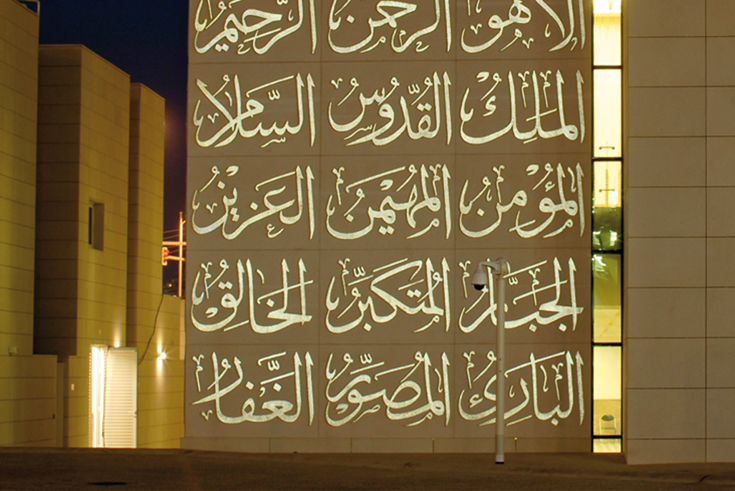 إلا هو الرحمن الرحيم
الملِكُ القُدُّوسُ السَّلامُ
المُؤْمِنُ المُهَيْمِنُ العَزِيزُ
الجَبَّارُ المُتَكَبِّرُ الخَالِقُ
البَارِئُ المُصَوِّرُ الغَفَّارُ